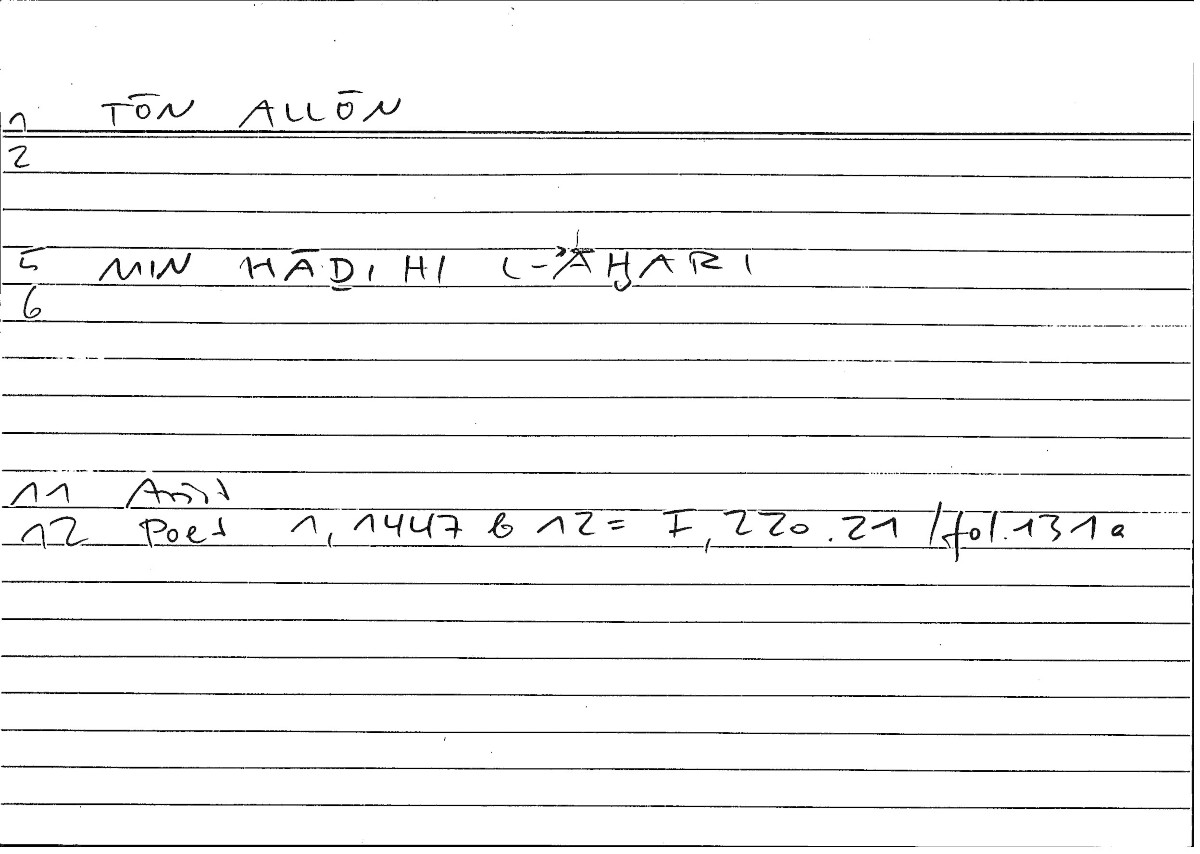 1 TŌN ALLŌN
2
5 MIN HĀḎIHI L-ʾĀḪARI
6
11 Arist
12 Poet 1, 1447 b 12 = I, 220.21 / fol. 131a